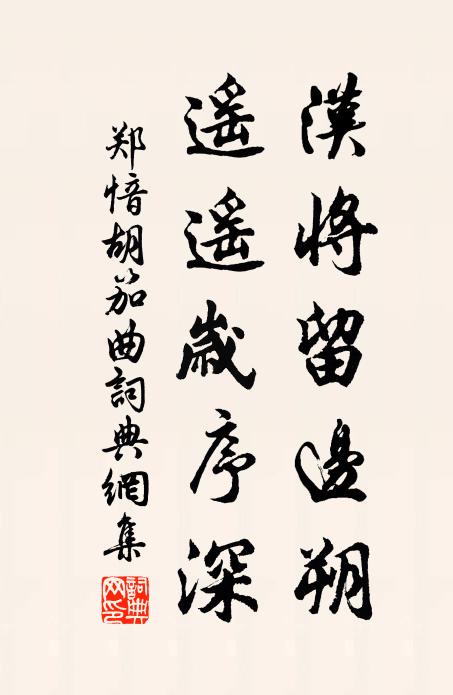 漢將留邊朔
遥遥歲序深
郑愔胡笳曲詞典網集
詞典网印